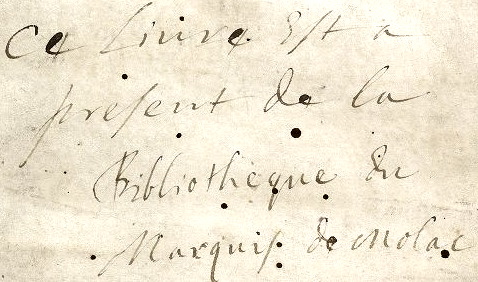 Ce Liure Est a
present de la
Bibliotheque du
Marquis de Molac